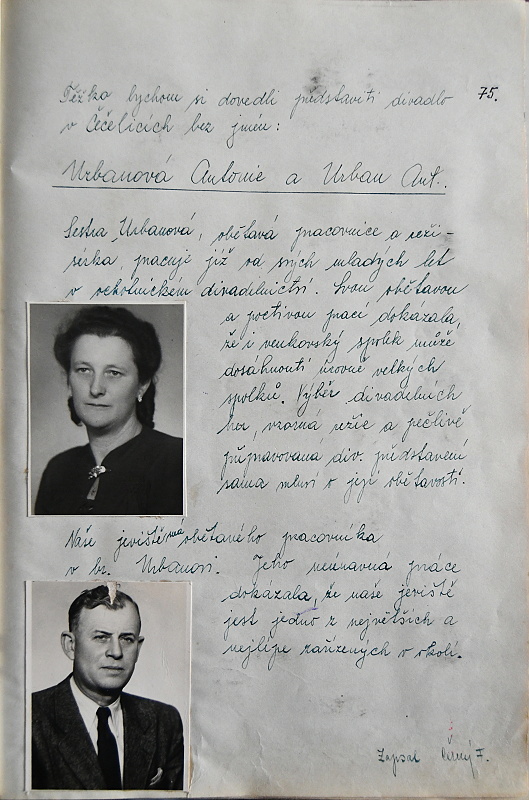 75.
Těžko bychom si dovedli představiti divadlo
v Čečelicích bez jmen:
Urbanová Antonie a Urban Ant.
Sestra Urbanová, obětavá pracovnice a reži-
sérka pracuje již od svých mladých let
v ochotnickém divadelnictví. Svou obětavou
a poctivou prací dokázala,
že i venkovský spolek může
dosáhnouti úrovně velkých
spolků. Výběr divadelních
her, vzorná režie a pečlivě
připravovaná div. představení
sama mluví o její obětavosti.
Naše jeviště má obětavého pracovníka
v br. Urbanovi. Jeho neúnavná práce
dokázala, že naše jeviště
jest jedno z největších a
nejlépe zařízených v okolí.
Zapsal Černý F.